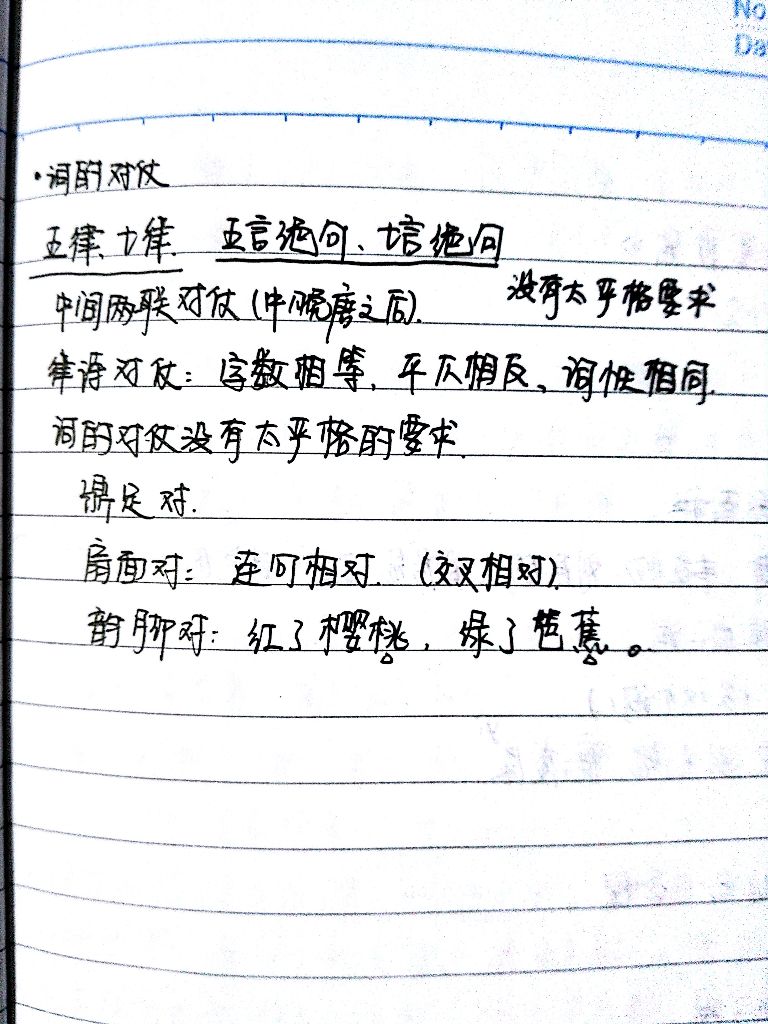 No
Da
·词的对仗
五律、七律. 五言绝句、七言绝句
中间两联对仗(中晚唐之后). 没有太严格要求
律诗对仗: 字数相等, 平仄相反、词性相同.
词的对仗没有太严格的要求.
鼎足对.
扇面对: 连句相对. (交叉相对).
韵脚对: 红了樱桃, 绿了芭蕉。